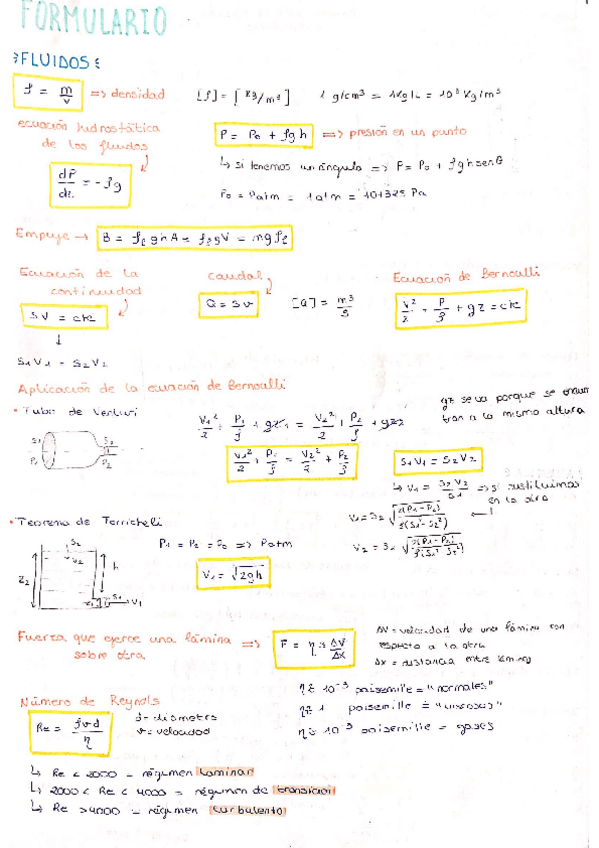 FORMULARIO
FLUIDOS
ρ = m/v => densidad [ρ] = [kg/m³] 1 g/cm³ = 1kg/L = 10³ kg/m³
ecuación hidrostática de los fluidos
P = P₀ + ρgh => presión en un punto
↳ si tenemos un ángulo => P = P₀ + ρgh senθ
dP/dz = -ρg
P₀ = Patm = 1atm = 101325 Pa
Empuje → B = ρ_f ghA = ρ_f gV = mg ρ_f
Ecuación de la continuidad
caudal
Ecuación de Bernoulli
SV = cte
Q = Sv [Q] = m³/s
V²/2 + P/ρ + gz = cte
↓
S₁V₁ = S₂V₂
Aplicación de la ecuación de Bernoulli
• Tubo de Venturi
V₁²/2 + P₁/ρ + gz₁ = V₂²/2 + P₂/ρ + gz₂
gz se va porque se encuen
tran a la misma altura
V₁²/2 + P₁/ρ = V₂²/2 + P₂/ρ
S₁V₁ = S₂V₂
S₁ P₁ S₂ P₂
↳ V₁ = S₂V₂/S₁ => si sustituimos
en la otra
V₁ = S₂ √(2(P₁-P₂)/ρ(S₁²-S₂²))
V₂ = S₁ √(2(P₁-P₂)/ρ(S₁²-S₂²))
• Teorema de Torricheli
P₁ = P₂ = P₀ => Patm
V₁ = √2gh
S₂ V₂ h z₂ z₁ S₁ V₁
Fuerza que ejerce una lámina => F = η s ΔV/Δx
sobre otra
ΔV = velocidad de una lámina con
respecto a la otra
Δx = distancia entre láminas
Número de Reynols
Re = ρvd/η
d = diámetro
v = velocidad
η ≈ 10⁻³ poisemille = "normales"
η ≈ 1 poisemille = "viscosos"
η ≈ 10⁻⁵ poisemille = gases
↳ Re < 2000 - régimen laminar
↳ 2000 < Re < 4000 = régimen de transición
↳ Re > 4000 - régimen turbulento